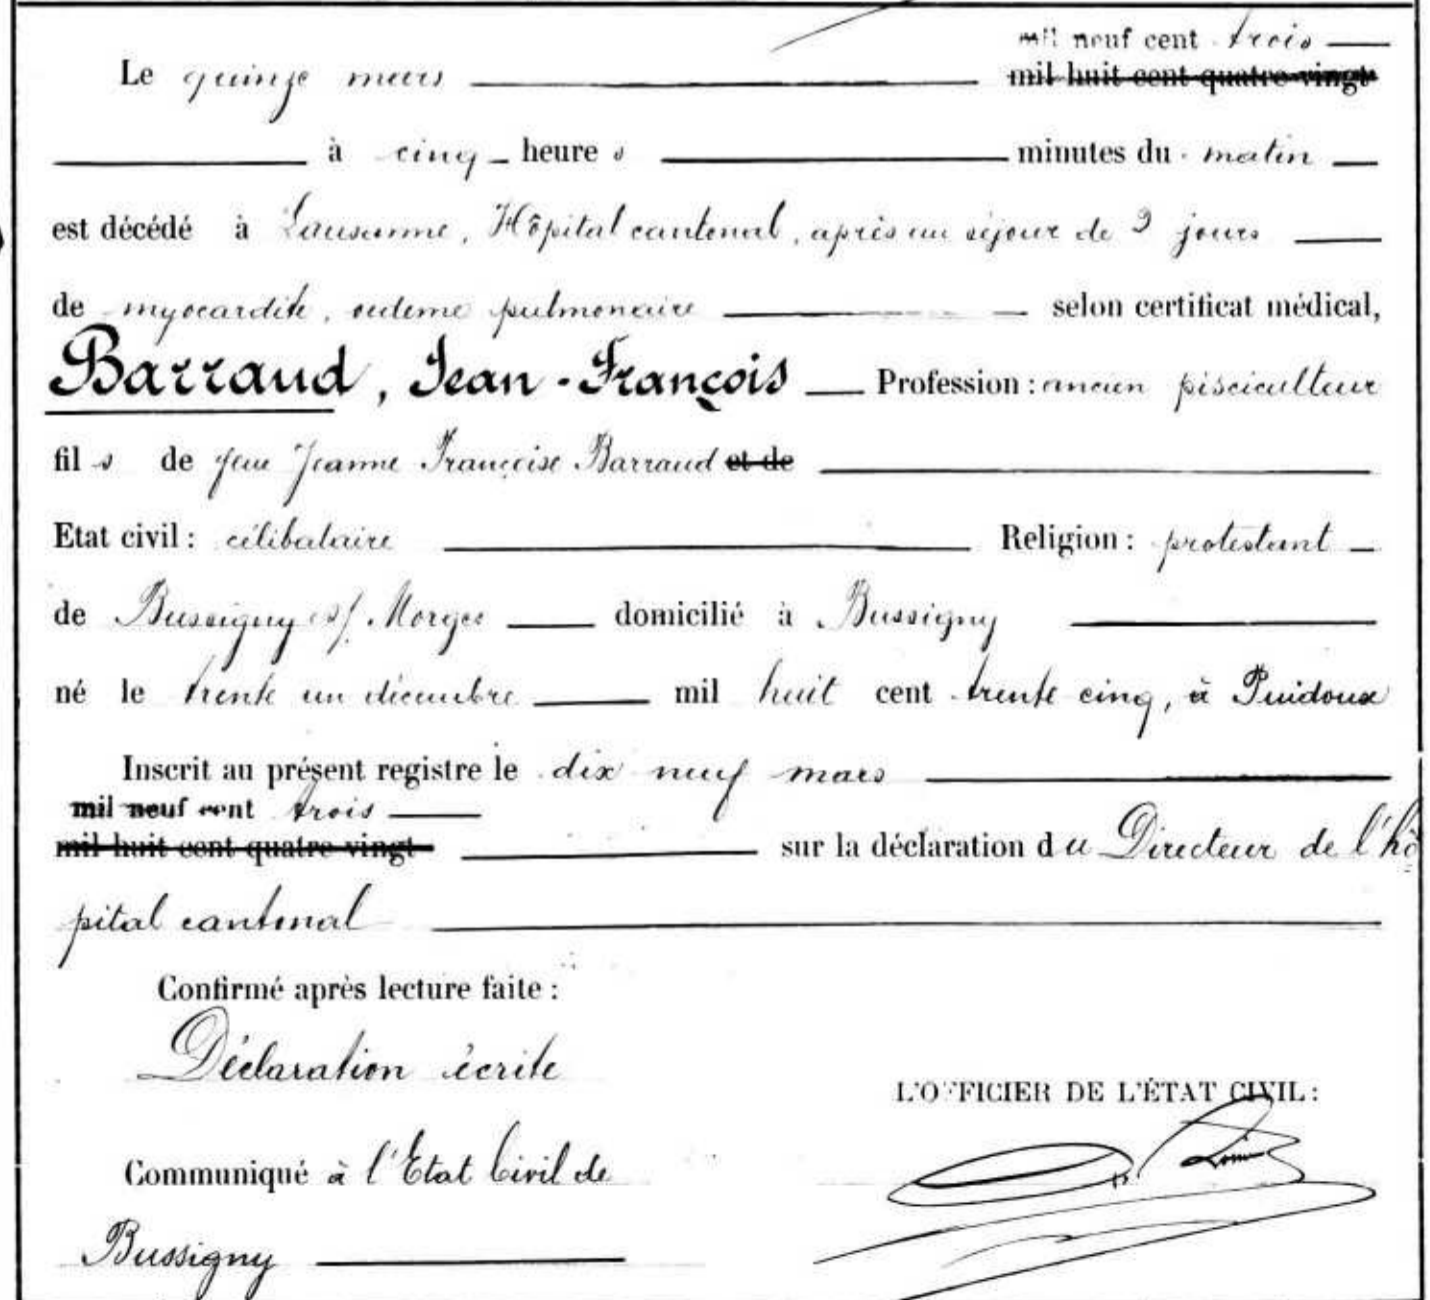 mil neuf cent trois
Le quinze mars mil huit cent quatre-vingt
à cinq heures minutes du matin
est décédé à Lausanne, Hôpital cantonal, après un séjour de 2 jours
de myocardite, œdeme pulmonaire selon certificat médical,
Barraud, Jean-François Profession : ancien pisciculteur
fils de feue Jeanne Françoise Barraud et de
Etat civil : célibataire Religion : protestant
de Bussigny s/. Morges domicilié à Bussigny
né le trente un décembre mil huit cent trente cinq, à Puidoux
Inscrit au présent registre le dix neuf mars
mil neuf cent trois
mil huit cent quatre-vingt sur la déclaration du Directeur de l'hô
pital cantonal
Confirmé après lecture faite :
Déclaration écrite
L'OFFICIER DE L'ÉTAT CIVIL :
Communiqué à l'Etat Civil de
Bussigny